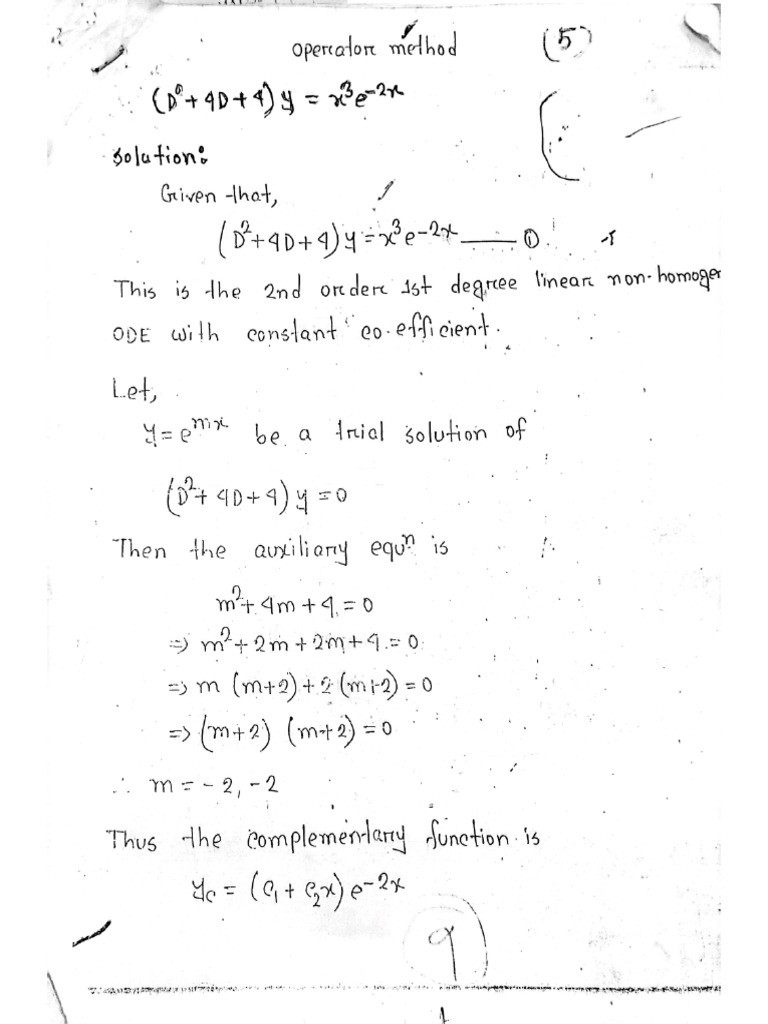 Operator method (5)
(D² + 4D + 4) y = x³e⁻²ˣ
Solution:
Given that,
(D² + 4D + 4) y = x³e⁻²ˣ —— ①
This is the 2nd order 1st degree linear non-homogen
ODE with constant co-efficient.
Let,
y = eᵐˣ be a trial solution of
(D² + 4D + 4) y = 0
Then the auxiliary equⁿ is
m² + 4m + 4 = 0
=> m² + 2m + 2m + 4 = 0
=> m (m+2) + 2 (m+2) = 0
=> (m+2) (m+2) = 0
∴ m = -2, -2
Thus the complementary function is
y_c = (c₁ + c₂x) e⁻²ˣ
9